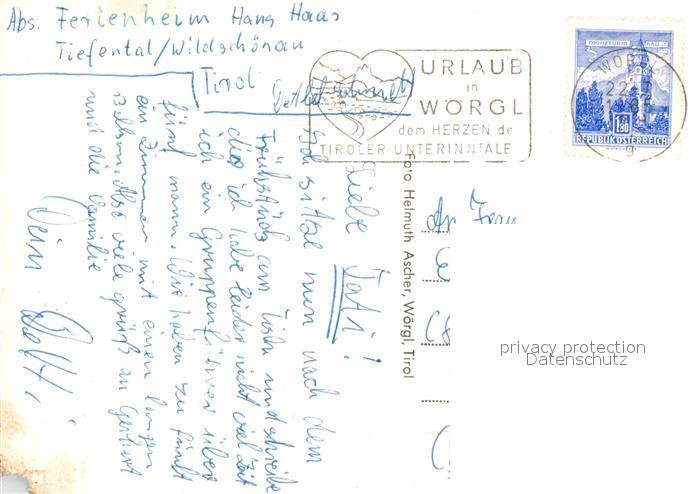 Abs. Ferienheim Hans Haas
Tiefental/Wildschönau
Tirol
URLAUB
in
WÖRGL
dem HERZEN de
TIROLER UNTERINNTALE
MÜNZTURM HALL I.T.
1.80
REPUBLIK ÖSTERREICH
WÖRG
22.
9
Foto Helmuth Ascher, Wörgl, Tirol
Liebe Tati!
Ich sitze nun nach dem
Frühstück am Tisch und schreibe
dir ich habe leider nicht viel Zeit
ich ein Gruppenführer über
fünf mann. Wir haben zu fünft
ein Zimmer mit einen langen
Balkon. Also viele grüße an
und die Familie
Dein
An Frau
privacy protection
Datenschutz